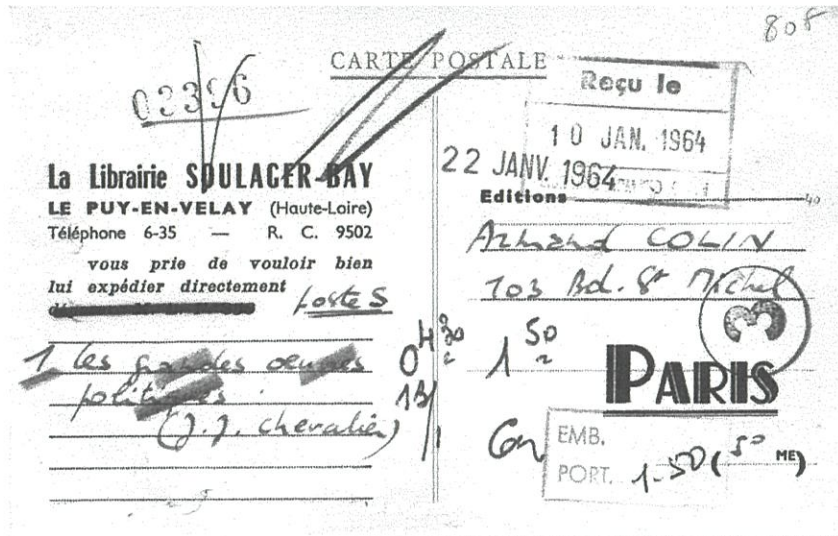 808
CARTE POSTALE
03396
Reçu le
10 JAN. 1964
22 JANV. 1964
La Librairie SOULAGER-BAY
LE PUY-EN-VELAY (Haute-Loire)
Téléphone 6-35 — R. C. 9502
vous prie de vouloir bien
lui expédier directement
poste S
1 les grandes oeuvres
politiques
(J.J. Chevalier)
Editions
Armand COLIN
103 Bd. St Michel
3
1 50
PARIS
EMB.
PORT. 1-50 (5° ME)